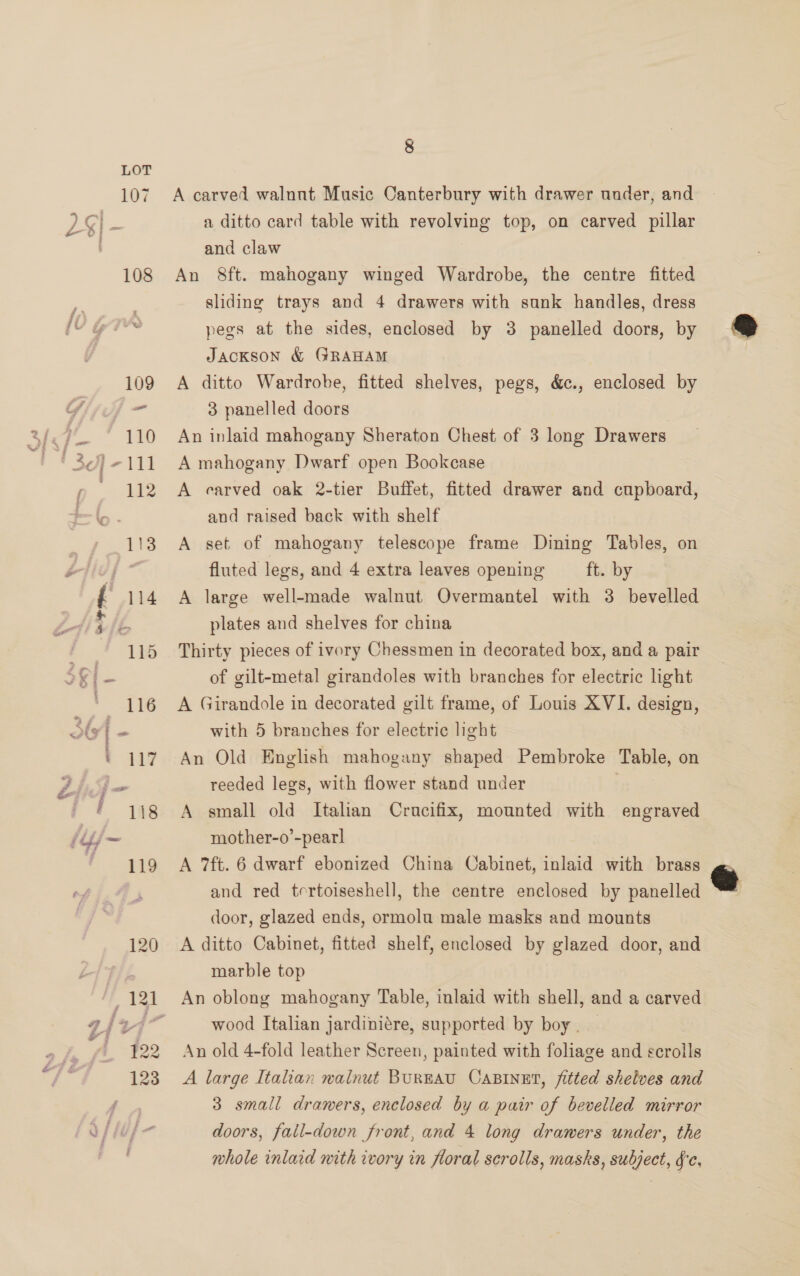 8
LOT
107 A carved walnut Music Canterbury with drawer under, and
28/- a ditto card table with revolving top, on carved pillar
and claw
108 An 8ft. mahogany winged Wardrobe, the centre fitted
sliding trays and 4 drawers with sunk handles, dress
pegs at the sides, enclosed by 3 panelled doors, by
JACKSON & GRAHAM
109 A ditto Wardrobe, fitted shelves, pegs, &c., enclosed by
3 panelled doors
110 An inlaid mahogany Sheraton Chest of 3 long Drawers
111 A mahogany Dwarf open Bookcase
112 A carved oak 2-tier Buffet, fitted drawer and cupboard,
and raised back with shelf
113 A set of mahogany telescope frame Dining Tables, on
fluted legs, and 4 extra leaves opening ft. by
114 A large well-made walnut Overmantel with 3 bevelled
plates and shelves for china
115 Thirty pieces of ivory Chessmen in decorated box, and a pair
38/- of gilt-metal girandoles with branches for electric light
116 A Girandole in decorated gilt frame, of Louis XVI. design,
with 5 branches for electric light
117 An Old English mahogany shaped Pembroke Table, on
reeded legs, with flower stand under
118 A small old Italian Crucifix, mounted with engraved
mother-o'-pearl
119 A 7ft. 6 dwarf ebonized China Cabinet, inlaid with brass
and red tortoiseshell, the centre enclosed by panelled
door, glazed ends, ormolu male masks and mounts
120 A ditto Cabinet, fitted shelf, enclosed by glazed door, and
marble top
121 An oblong mahogany Table, inlaid with shell, and a carved
wood Italian jardinière, supported by boy.
122 An old 4-fold leather Screen, painted with foliage and scrolls
123 A large Italian walnut BUREAU CABINET, fitted shelves and
3 small drawers, enclosed by a pair of bevelled mirror
doors, fall-down front, and 4 long drawers under, the
whole inlaid with ivory in floral scrolls, masks, subject, &c,